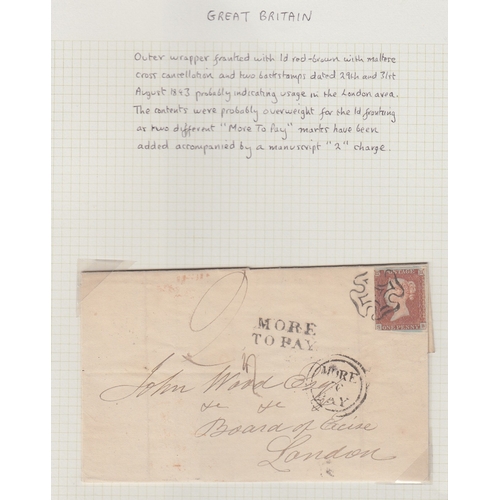 GREAT BRITAIN
Outer wrapper franked with 1d red-brown with maltese
cross cancellation and two backstamps dated 29th and 31st
August 1843 probably indicating usage in the London area.
The contents were probably overweight for the 1d franking
as two different "More To Pay" marks have been
added accompanied by a manuscript "2" charge.
POSTAGE
ONE PENNY
2
MORE
TO PAY
MORE
PAY
John Wood Esqr
&c &c
Board of Excise
London